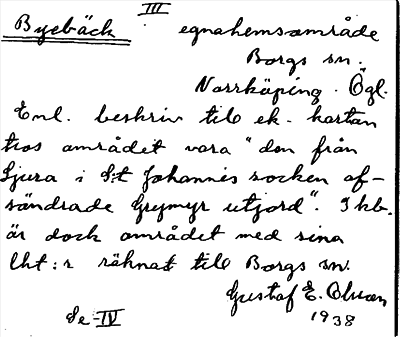 III
Byebäck egnahemsområde
Borgs sn.
Norrköping. Ögl.
Enl. beskriv till ek. kartan
tros området vara "den från
Ljura i S:t Johannis socken af-
söndrade Grymyr utjord". I kb.
är dock området med sina
lht:r räknat till Borgs sn.
Gustaf E. Olsson
1938
Se IV